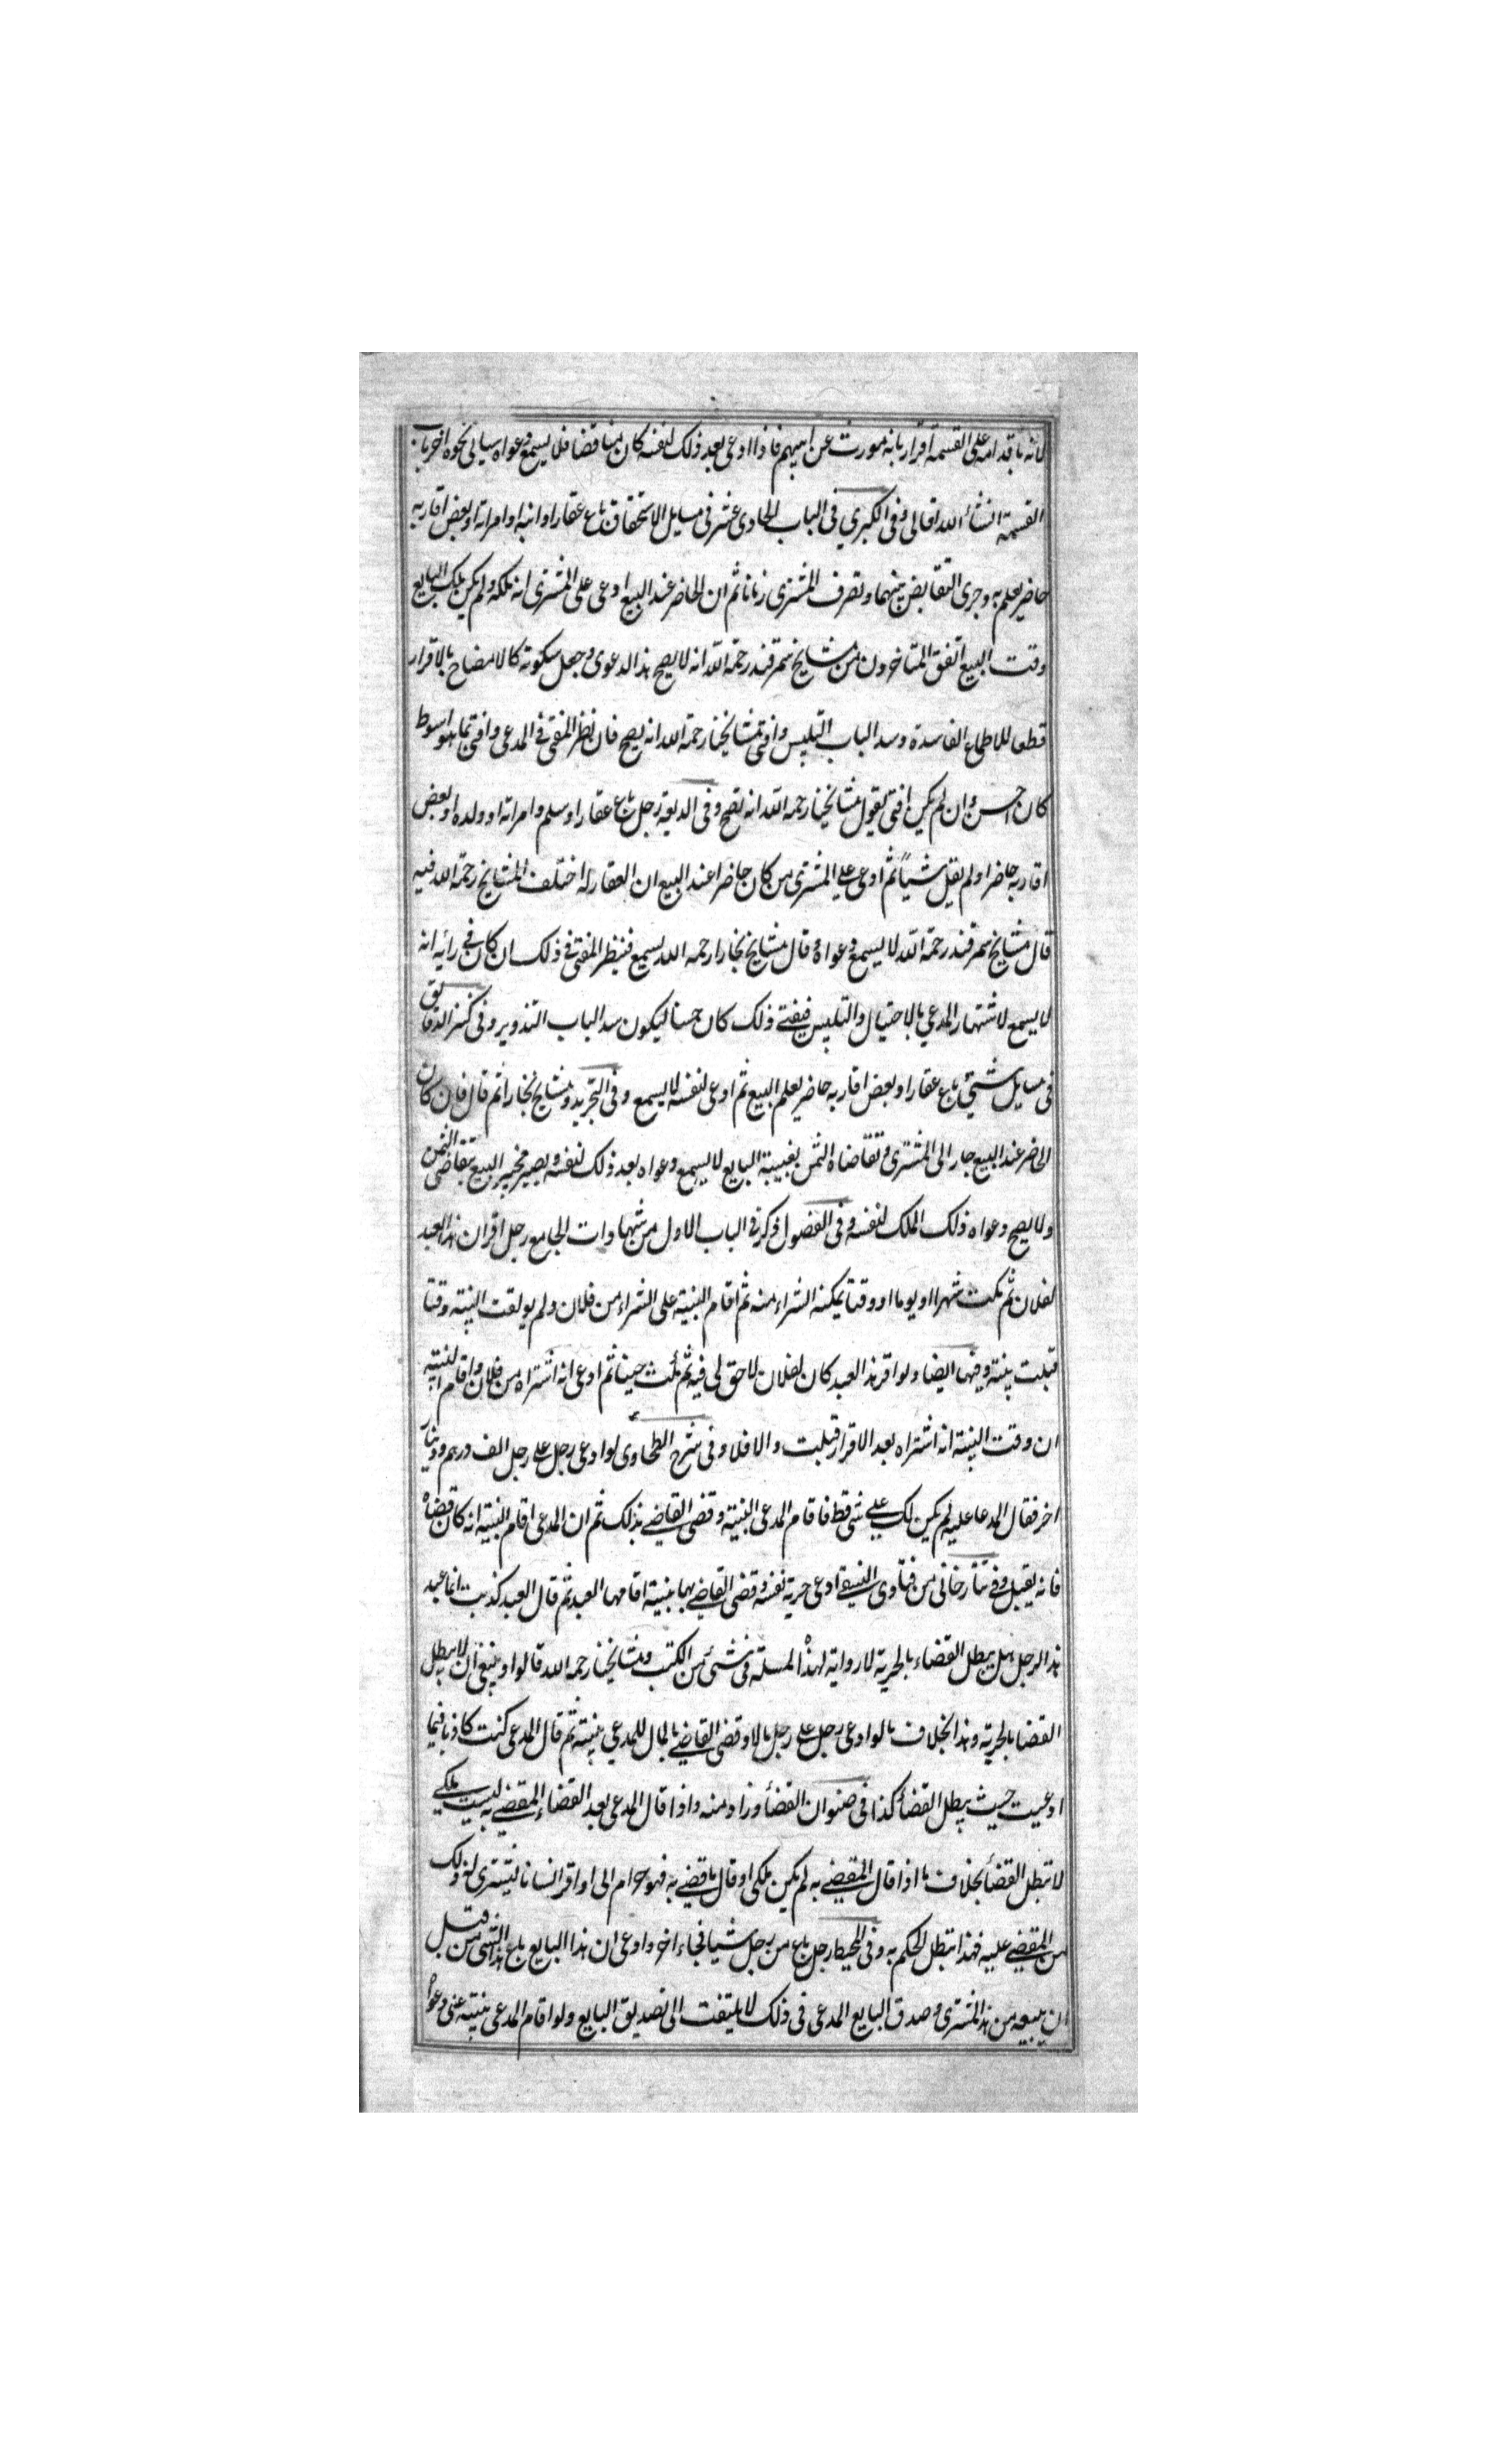 لانه باقدامه على القسمة اقرار بانه موروث عن ابيهم فاذا ادعى بعد ذلك لنفسه كان مناقضا فلا يسمع دعواه سياتى نحوه اخر باب
القسمة انشاء الله تعالى وفى الكبرى فى الباب الحادى عشر فى مسايل الاستحقاق باع عقارا وابنه او امراته او بعض اقاربه
حاضر يعلم به وجرى التقابض بينهما وتصرف المشترى زمانا ثم ان الحاضر عند البيع ادعى على المشترى انه ملكه ولم يكن ملك البايع
وقت البيع اتفق المتاخرون من مشايخ سمرقند رحمة الله انه لا يصح هذا الدعوى وجعل سكوته كالافصاح بالاقرار
قطعا للاطماع الفاسدة وسد الباب التلبيس وافتى مشايخنا رحمة الله انه يصح فان نظر المفتى فى المدعى وافتى بما هو اسوط
كان احسن وان لم يكن افتى بقول مشايخنا رحمه الله انه تصح وفى رجل باع عقارا وسلم وامراته او ولده او بعض
اقاربه حاضرا ولم يقل شيأ ثم ادعى على المشترى من كان حاضرا عند البيع ان العقار له اختلف المشايخ رحمة الله فيه
قال مشايخ سمرقند رحمة الله لا يسمع دعواه وقال مشايخ بخارا رحمه الله يسمع فينظر المفتى فى ذلك ان كان فى رايه انه
لا يسمع لاشتهار المدعي بالاحتيال والتلبيس فيفتى ذلك كان حسنا ليكون سد الباب التذوير وفى كنز الدقايق
فى مسايل شتي باع عقارا وبعض اقاربه حاضر يعلم البيع ثم ادعى لنفسه لا يسمع وفى التجريد ومشايخ بخارا ثم قال فان كان
الحاضر عند البيع جار الى المشترى وتقاضاه الثمن بغيبة البايع لا يسمع دعواه بعد ذلك لنفسه ويصير مجيز البيع بتقاضى الثمن
ولا يصح دعواه ذلك الملك لنفسه وفى الفصول ذكر فى الباب الاول من شهادات الجامع رجل اقر ان هذا العبد
لفلان ثم مكث شهرا او يوما او وقتا يمكنه الشراء منه ثم اقام البينة على الشراء من فلان ولم يوقت البينة وقتا
قبلت بينته وفيها ايضا ولو اقر هذا العبد كان لفلان لا حق لى فيه ثم مكث حينا ثم ادعى انه اشتراه من فلان واقام البينة
ان وقت البينة انه اشتراه بعد الاقرار قبلت والا فلا وفى شرح الطحاوى لو ادعى رجل على رجل الف درهم ودينار
اخر فقال المدعا عليه لم يكن لك على شى قط فاقام المدعى البينة وقضى القاضى بذلك ثم ان المدعى اقام البينة انه كان قضاه
فانه يقبل وفى تتارخانى من فتاوى النسفى ادعى حرية نفسه وقضى القاضى بها ببينة اقامها العبد ثم قال العبد كذبت انما عبد
هذا الرجل هل يبطل القضاء بالحرية لا رواية لهذه المسئلة فى شىء من الكتب ومشايخنا رحمه الله قالوا وينبغى ان لا يبطل
القضا بالحرية وهذا بخلاف ما لو ادعى رجل على رجل مالا وقضى القاضى بالمال للمدعى ببينة ثم قال المدعى كنت كاذبا فيما
ادعيت حيث يبطل القضأ كذا فى صنوان القضأ وزاد منه واذا قال المدعى بعد القضاء المقضى به ليست ملكى
لا تبطل القضأ بخلاف ما اذا قال المقضى به لم يكن ملكى او قال ما قضى به فهو حرام الى او اقر انسانا ليشترى له ذلك
من المقضى عليه فهذا تبطل الحكم به وفى المحيط رجل باع من رجل شيا فجاء اخر وادعى ان هذا البايع باع هذا الشى من قبل
ان يبيعه من هذا المشترى وصدق البايع المدعى فى ذلك لا يلتفت الى تصديق البايع ولو اقام المدعى بينته عنى دعواه